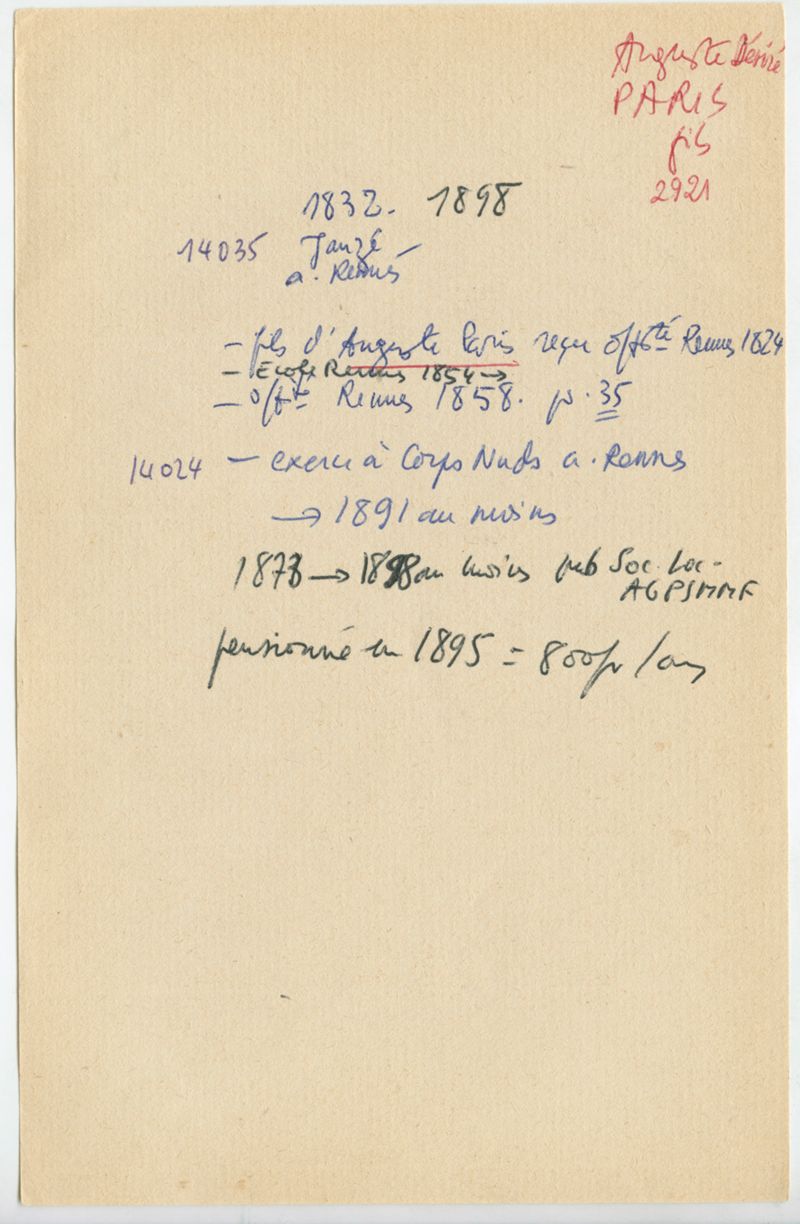 Auguste Désiré
PARIS
fils
2921
1832. 1898
14035 Janzé
a. Rennes
- fils d'Auguste Paris reçu off té Rennes 1824
- Ecole Rennes 1854 →
- off té Rennes 1858. p. 35
14024 - exerce à Corps Nuds a. Rennes
→ 1891 au moins
1873 → 1898 au moins Soc. Loc.
AGPSMMF
pensionné en 1895 = 800 fr / an